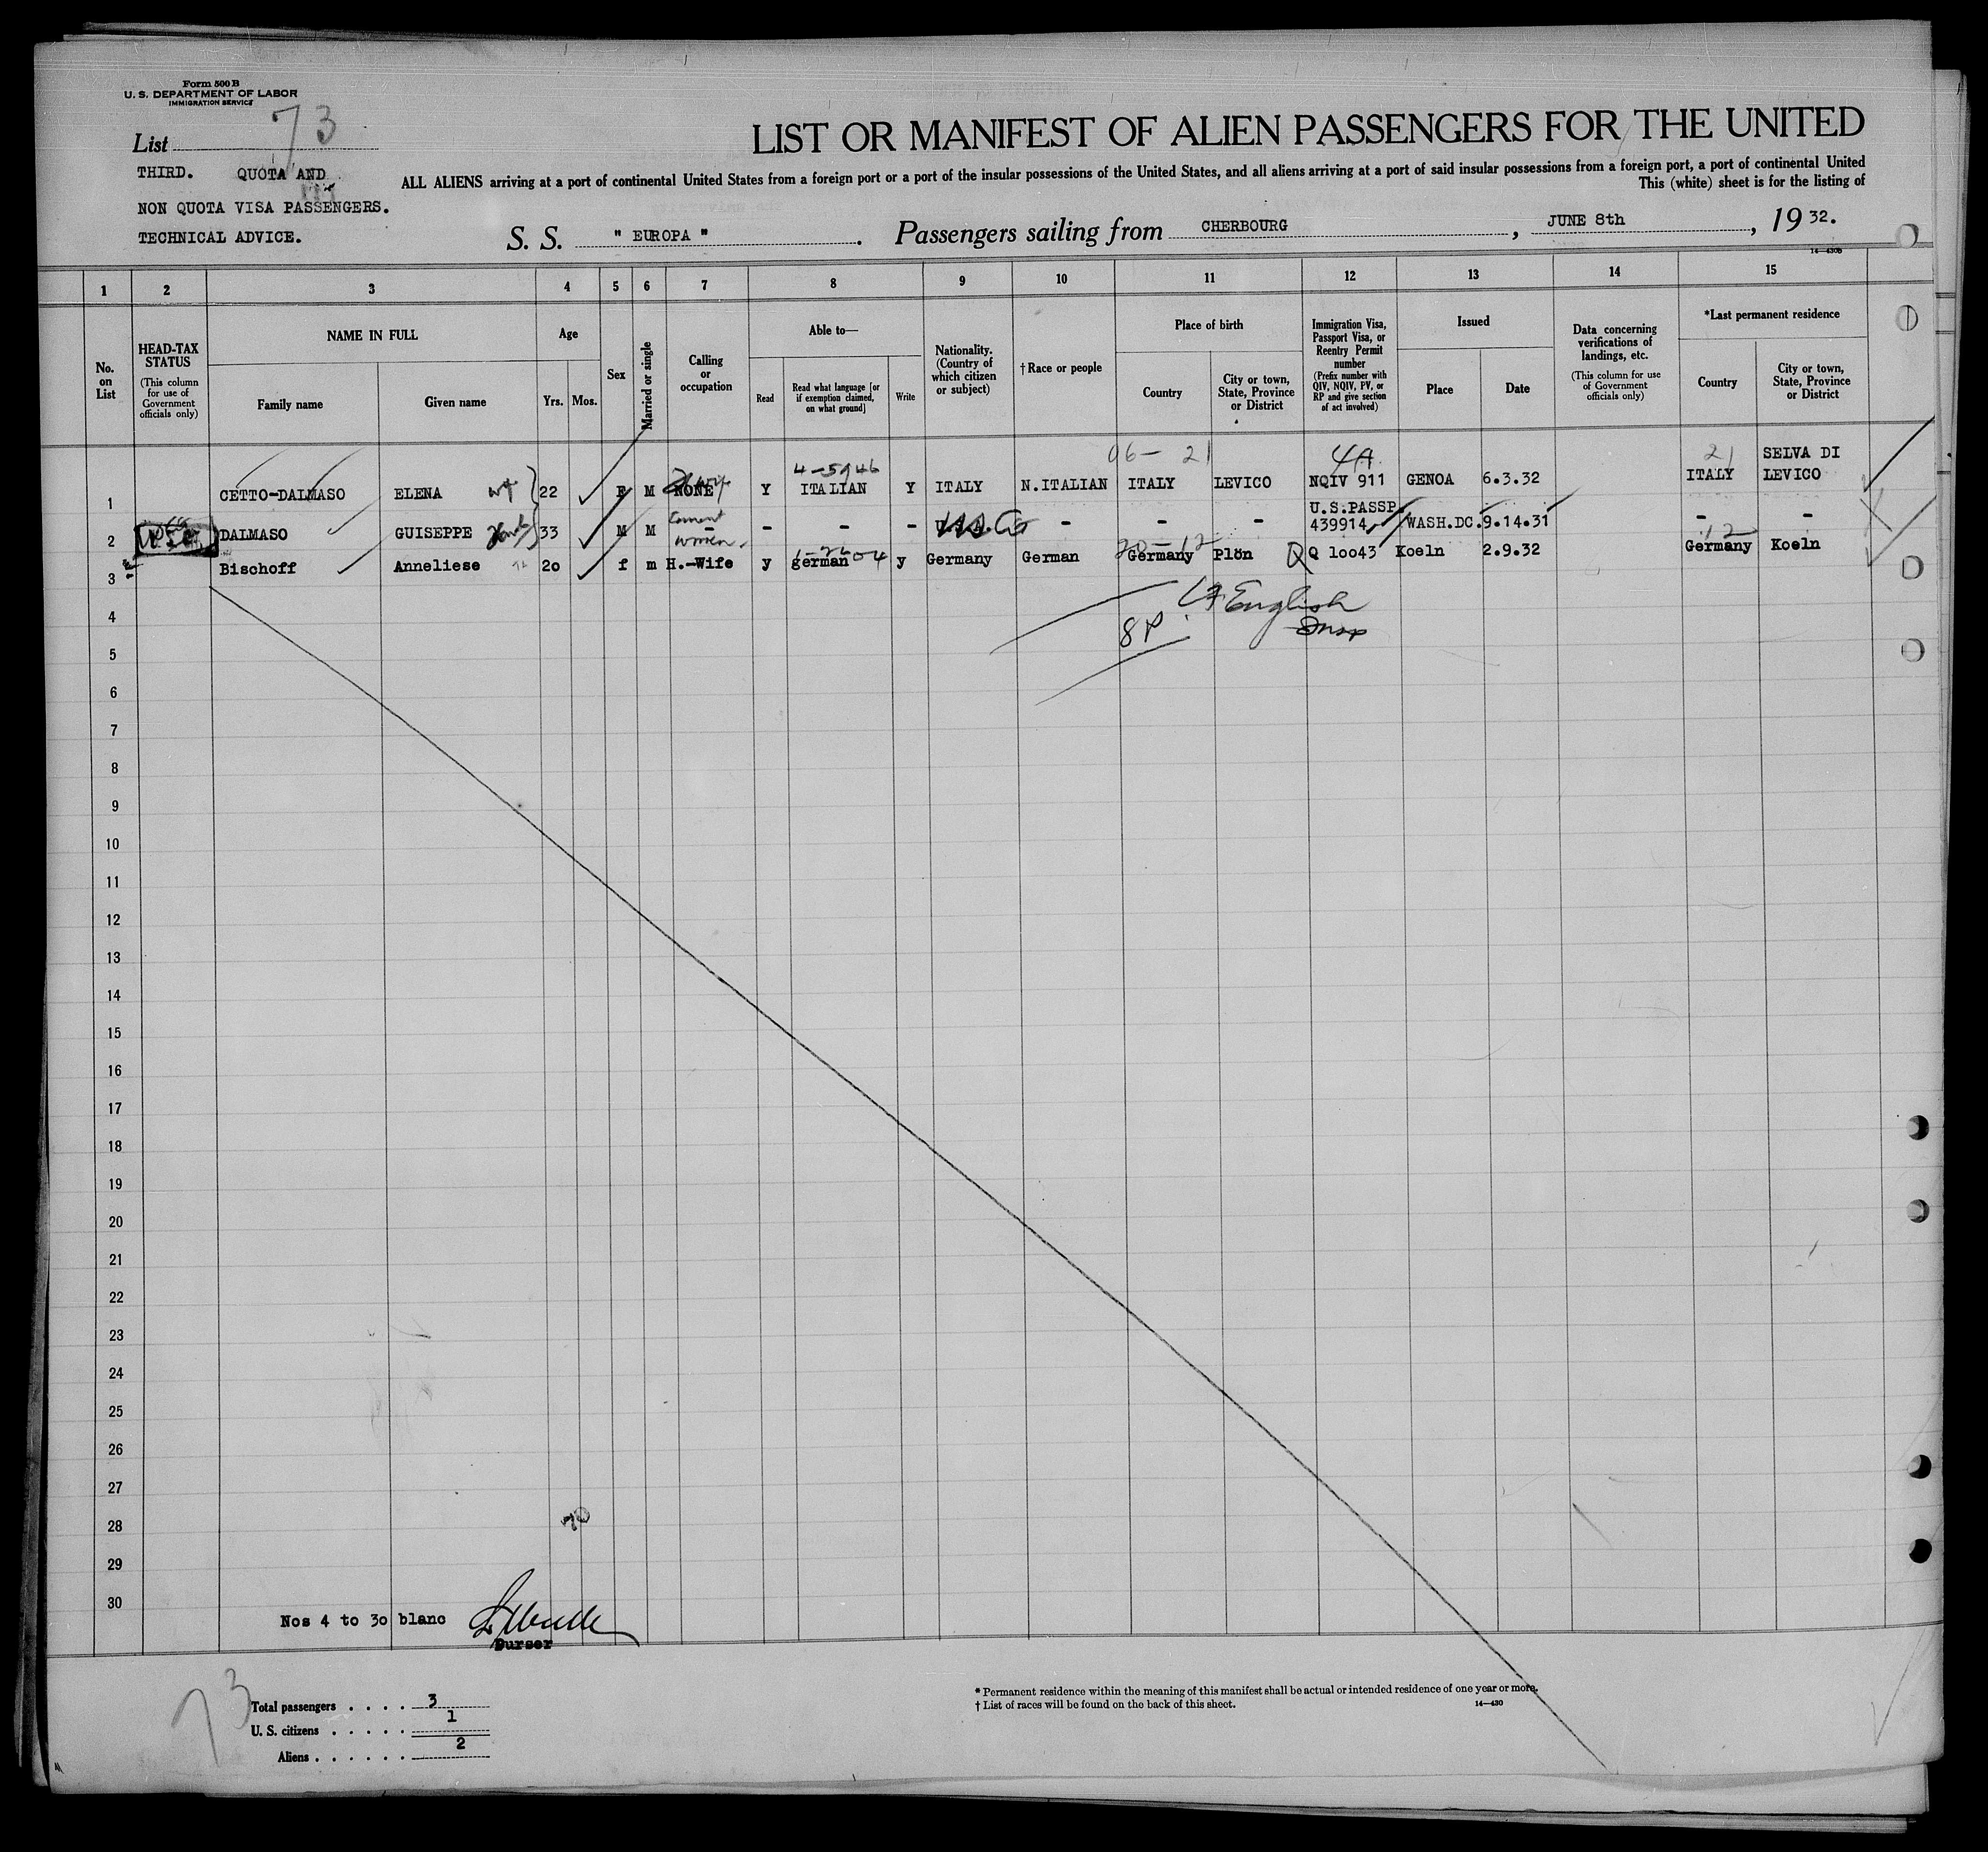 Form 500 B
U. S. DEPARTMENT OF LABOR
IMMIGRATION SERVICE
List 73
THIRD. QUOTA AND
NON QUOTA VISA PASSENGERS.
TECHNICAL ADVICE.
LIST OR MANIFEST OF ALIEN PASSENGERS FOR THE UNITED
ALL ALIENS arriving at a port of continental United States from a foreign port or a port of the insular possessions of the United States, and all aliens arriving at a port of said insular possessions from a foreign port, a port of continental United
This (white) sheet is for the listing of
S. S. " EUROPA ". Passengers sailing from CHERBOURG, JUNE 8th, 19 32.
14—430B
1 2 3 4 5 6 7 8 9 10 11 12 13 14 15
No. on List
HEAD-TAX STATUS
(This column for use of Government officials only)
NAME IN FULL
Family name
Given name
Age
Yrs.
Mos.
Sex
Married or single
Calling or occupation
Able to—
Read
Read what language [or if exemption claimed, on what ground]
Write
Nationality. (Country of which citizen or subject)
† Race or people
Place of birth
Country
City or town, State, Province or District
Immigration Visa, Passport Visa, or Reentry Permit number
(Prefix number with QIV, NQIV, PV, or RP and give section of act involved)
Issued
Place
Date
Data concerning verifications of landings, etc.
(This column for use of Government officials only)
*Last permanent residence
Country
City or town, State, Province or District
4-5946 06— 21 4A 21 SELVA DI
1 CETTO-DALMASO ELENA 22 F M NONE Y ITALIAN Y ITALY N.ITALIAN ITALY LEVICO NQIV 911 GENOA 6.3.32 ITALY LEVICO
U.S.PASSP
2 DALMASO GUISEPPE 33 M M Cement - - - - - - - 439914 WASH.DC. 9.14.31 - -
3 Bischoff Anneliese 20 f m H.-Wife y german y Germany German Germany Plön Q 10043 Koeln 2.9.32 Germany Koeln
English
4
8P
5
6
7
8
9
10
11
12
13
14
15
16
17
18
19
20
21
22
23
24
25
26
27
28
29
30
Nos 4 to 30 blanc
Purser
73
Total passengers . . . . 3
U. S. citizens . . . . . 1
Aliens . . . . . . 2
* Permanent residence within the meaning of this manifest shall be actual or intended residence of one year or more.
† List of races will be found on the back of this sheet. 14—430